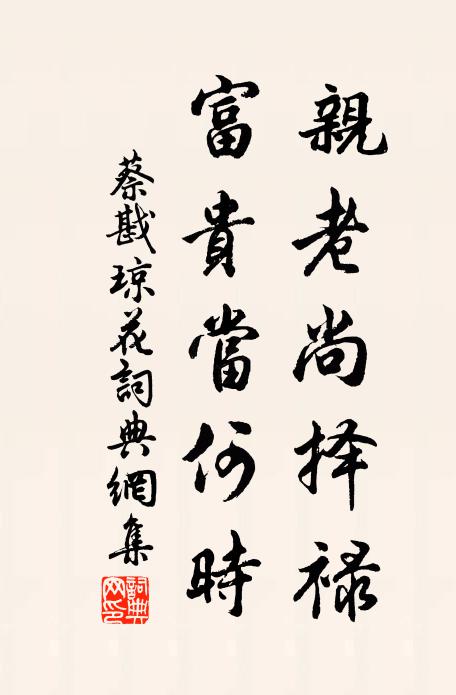 親老尚择禄
富貴當何時
蔡戡琼花詞典網集
詞典
网印